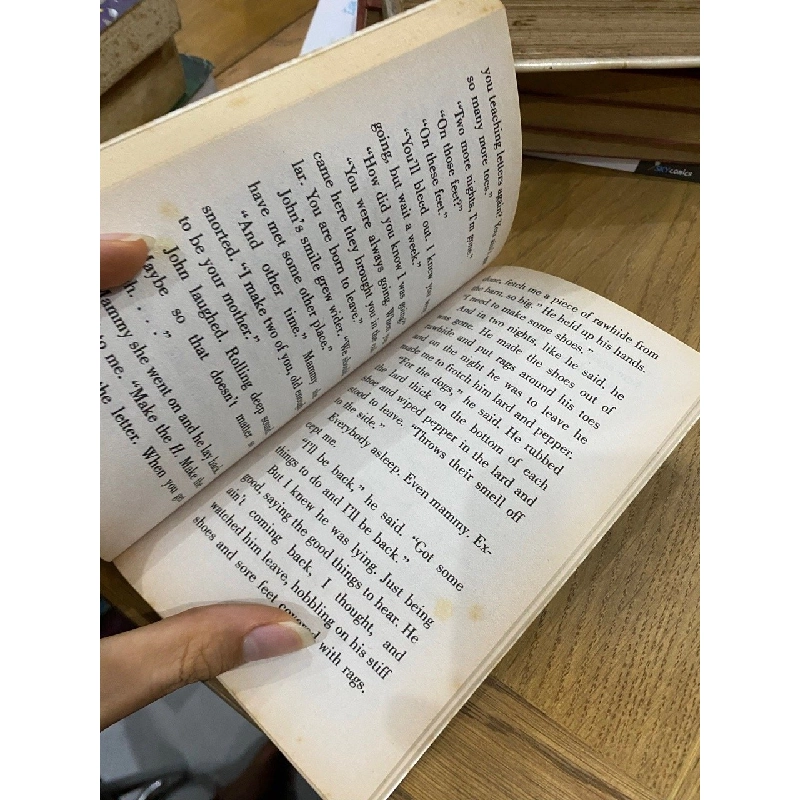 you teaching letters again? You
so many more toes."
"Two more nights, I'm gone."
"On those feet?"
"On these feet."
"You'll bleed out. I knew you
going, but wait a week."
"How did you know I was going?
"You were always going. When
came here they brought you in the col-
lar. You are born to leave."
John's smile grew wider. "We should
have met some other place."
"And other time." Mammy
snorted. "I make two of you, old enough
to be your mother."
John laughed. Rolling deep sound.
"Maybe so that doesn't matter
. . . ."
Mammy she went on and he lay back
to me. "Make the H. Make the
the letter. When you get
done, fetch me a piece of rawhide from
the barn, so big." He held up his hands.
"I need to make some shoes."
And in two nights, like he said, he
was gone. He made the shoes out of
rawhide and put rags around his toes
and on the night he was to leave he
made me to fetch him lard and pepper.
"For the dogs," he said. He rubbed
the lard thick on the bottom of each
shoe and wiped pepper in the lard and
stood to leave. "Throws their smell off
to the side."
Everybody asleep. Even mammy. Ex-
cept me.
"I'll be back," he said. "Got some
things to do and I'll be back."
But I knew he was lying. Just being
good, saying the good things to hear. He
ain't coming back, I thought, and
watched him leave, hobbling on his stiff
shoes and sore feet covered with rags.
SKYcomics